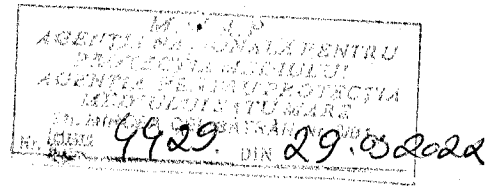 M. A. P.
AGENȚIA NAȚIONALĂ PENTRU
PROTECȚIA MEDIULUI
AGENȚIA PENTRU PROTECȚIA
MEDIULUI SATU MARE
MIRCEA CEL BĂTRÂN
Nr. 4429. DIN 29.03 2022